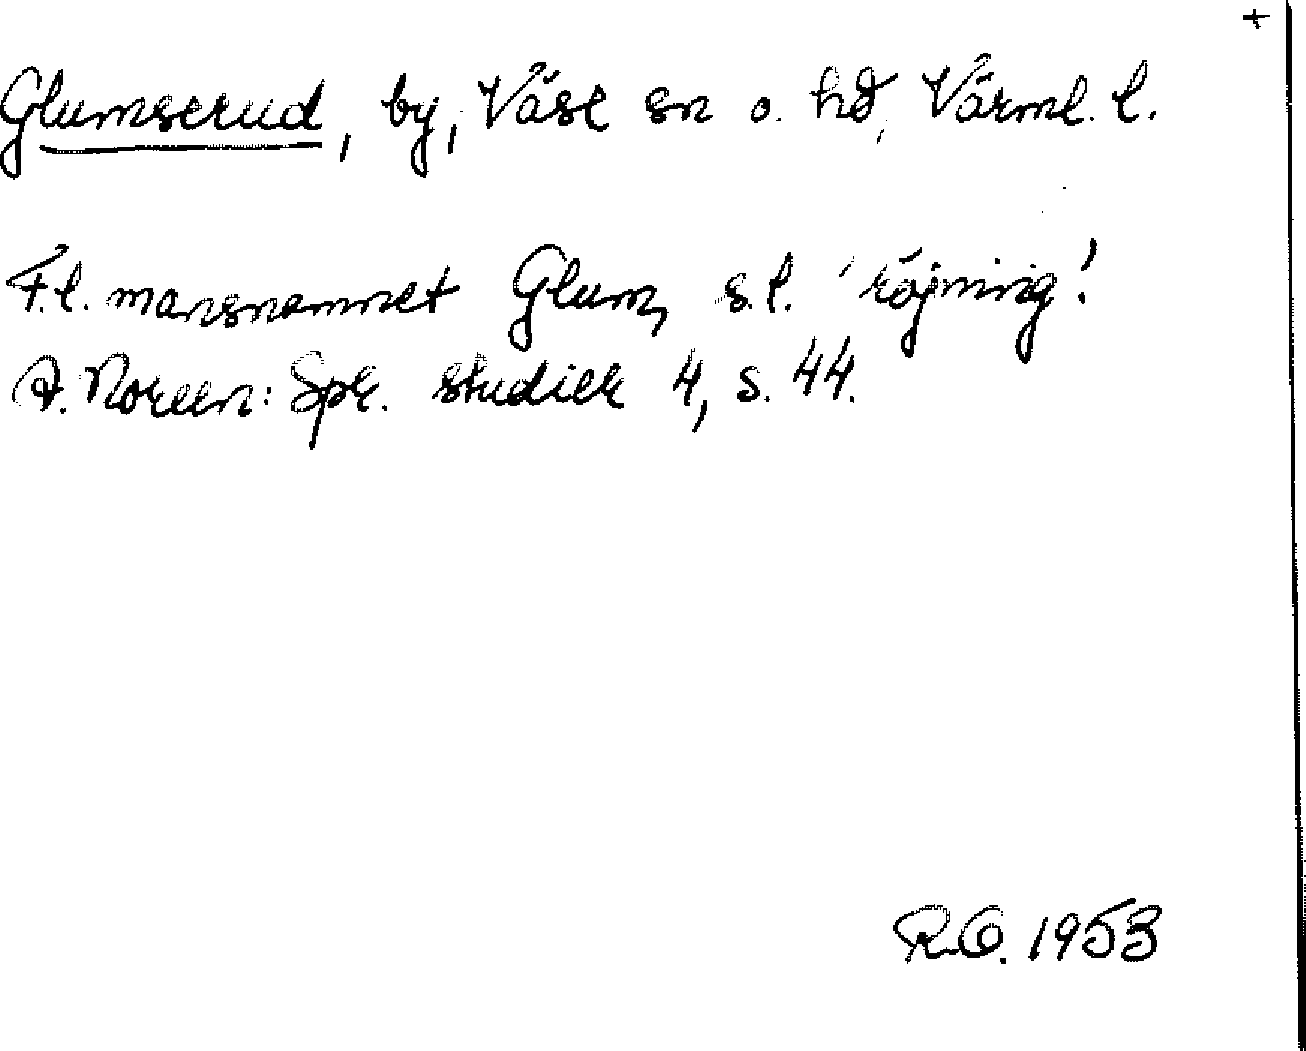 +
Glumserud, by, Väse sn o. hd, Värml. l.
F.l. mansnamnet Glum, s.l. 'röjning'.
A. Noreen: Spr. studier 4, s. 44.
R.O. 1953